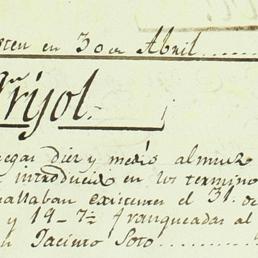 sten en 30 de Abril
Frijol.
negas diez y medio almuz
introducid en los termino
allaban existentes el 31. de
y 19-7½ franqueadas al
Jacinto Soto